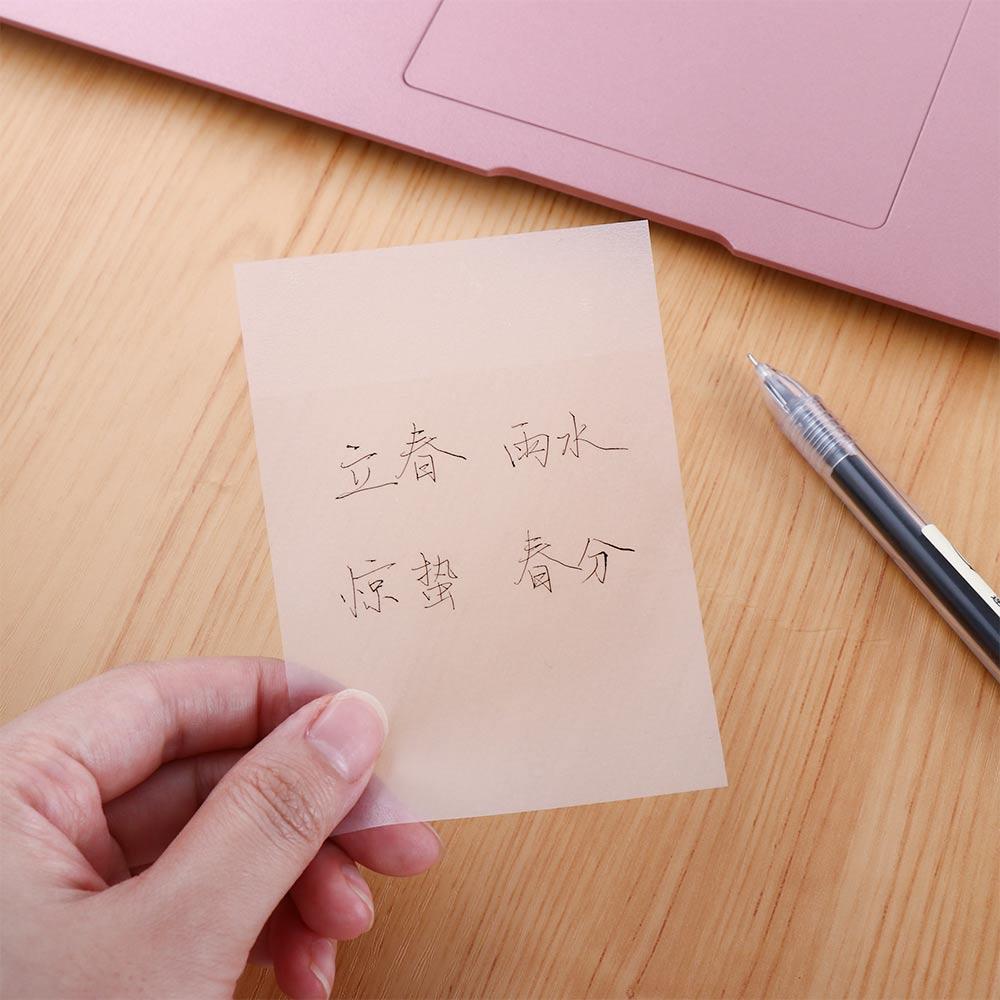 立春 雨水
惊蛰 春分